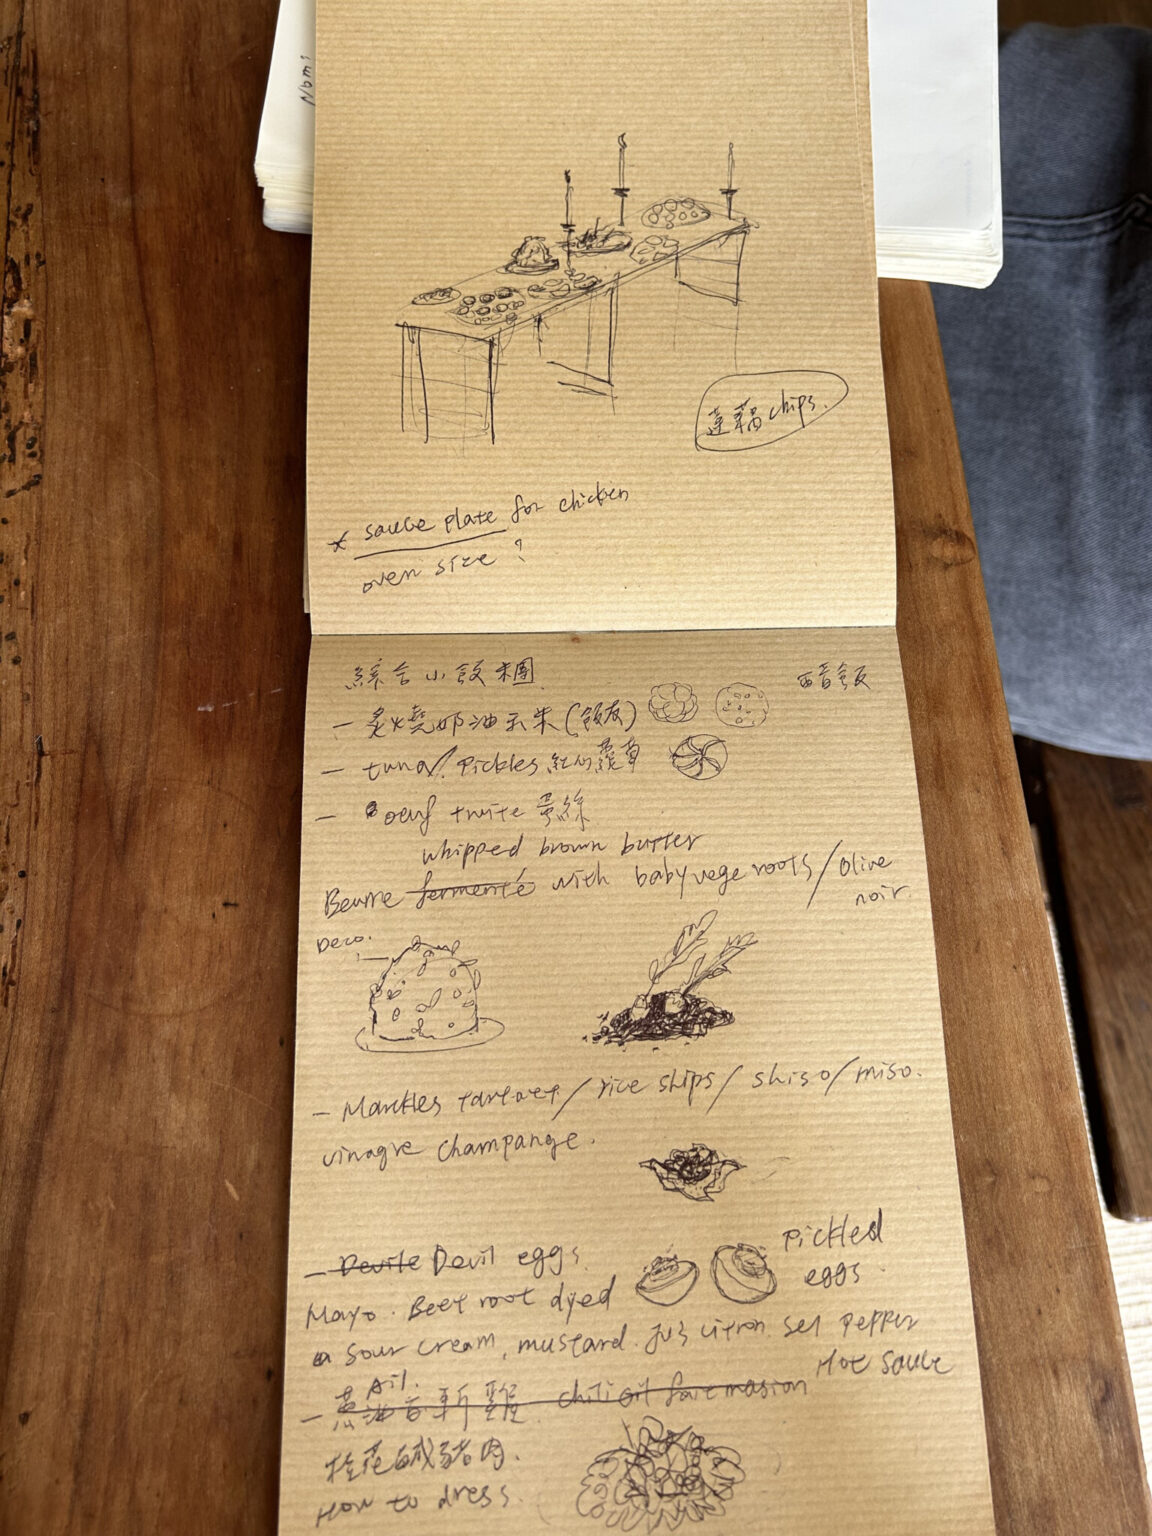 Noms
蓮藕 chips.
* sauce plate for chicken
oven size ?
綜合小飯糰
醋飯
– 炙燒奶油玉米(飯友)
– tuna/ Pickles 紅心蘿蔔
– oeuf truite 蛋絲
whipped brown butter
Beurre fermenté with baby vege roots / Olive
noir.
Deco.
– Marckles tartare / rice ships / shiso / miso.
vinagre champange.
– Devile Devil eggs.
Pickled
eggs.
Mayo. Beet root dyed
sour cream, mustard. jus citron. sel pepper
Ail.
Hot sauce
– 蔥油 雞 chili oil
桂花鹹豬肉.
How to dress.